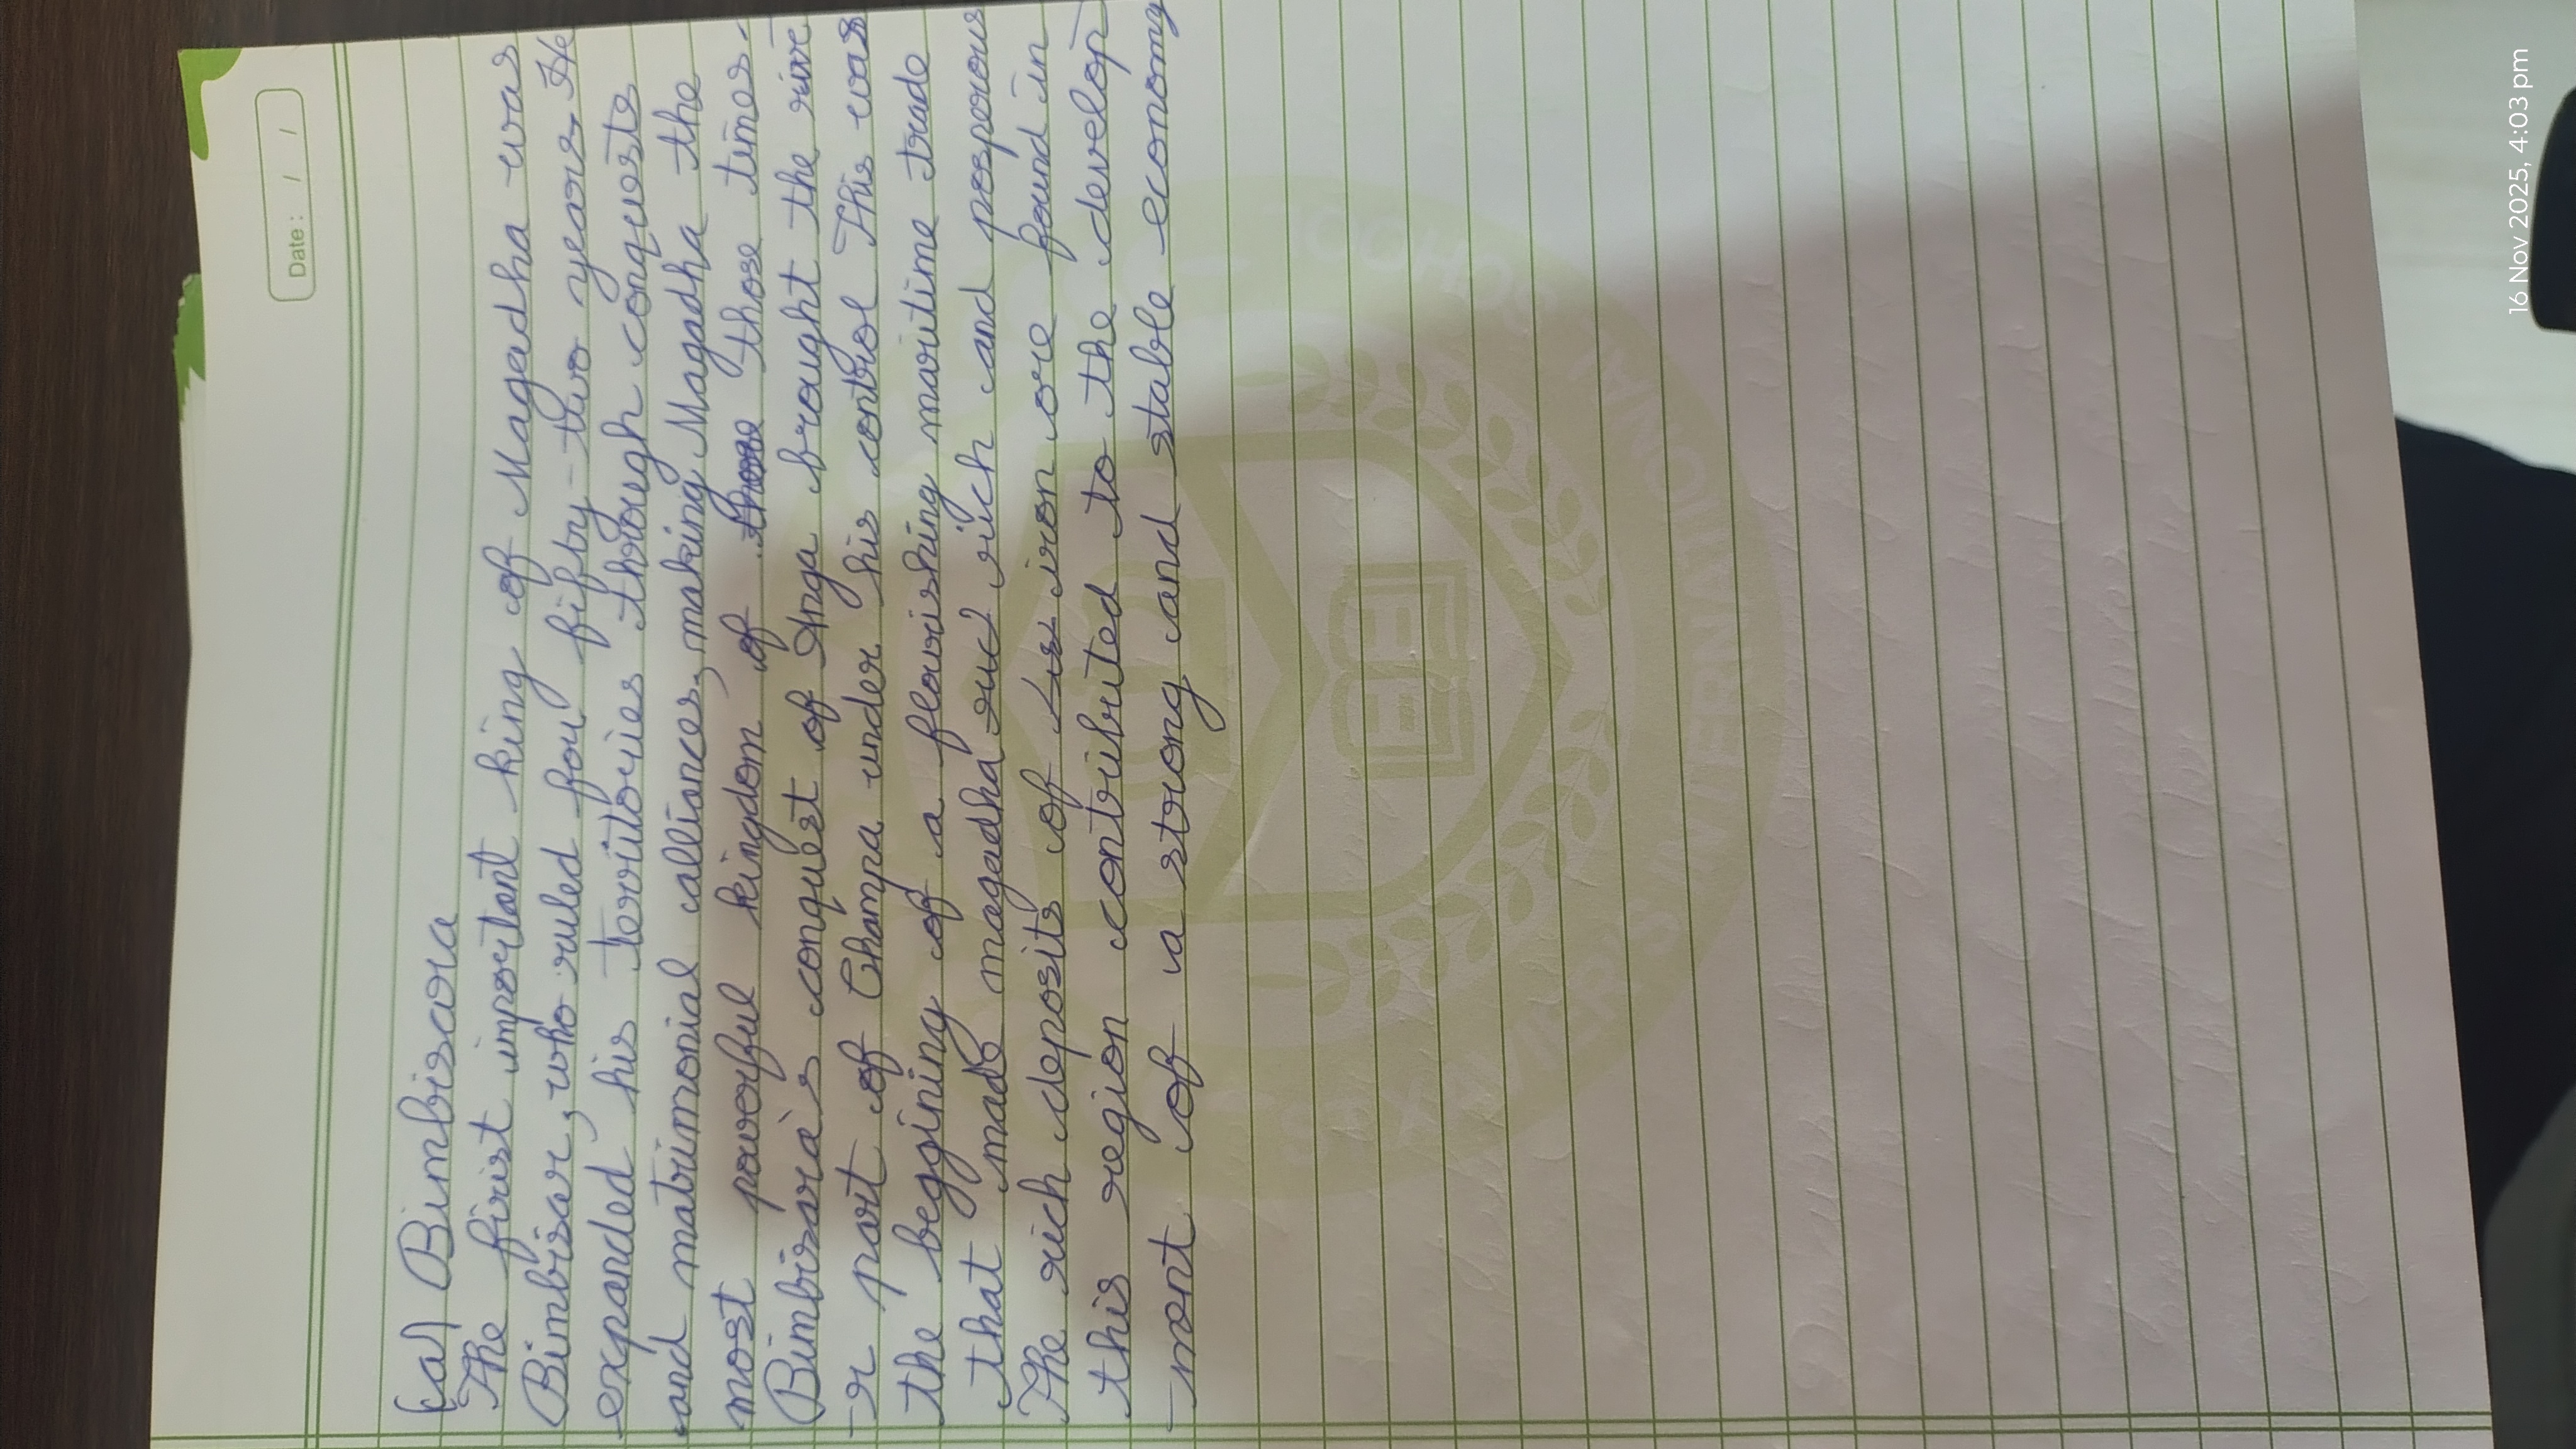 Date : / /
(a) Bimbisara
The first important king of Magadha was
Bimbisar, who ruled for fifty-two years. He
expanded his territories through conquests
and matrimonial alliances, making Magadha the
most powerful kingdom of those those times.
Bimbisara's conquest of Anga brought the rive
-r port of Champa under his control This was
the beggining of a flourishing maritime trade
that made magadha ruch rich and posperous
The rich deposits of iron ore found in
this region contributed to the develop
-ment of a strong and stable economy
16 Nov 2025, 4:03 pm